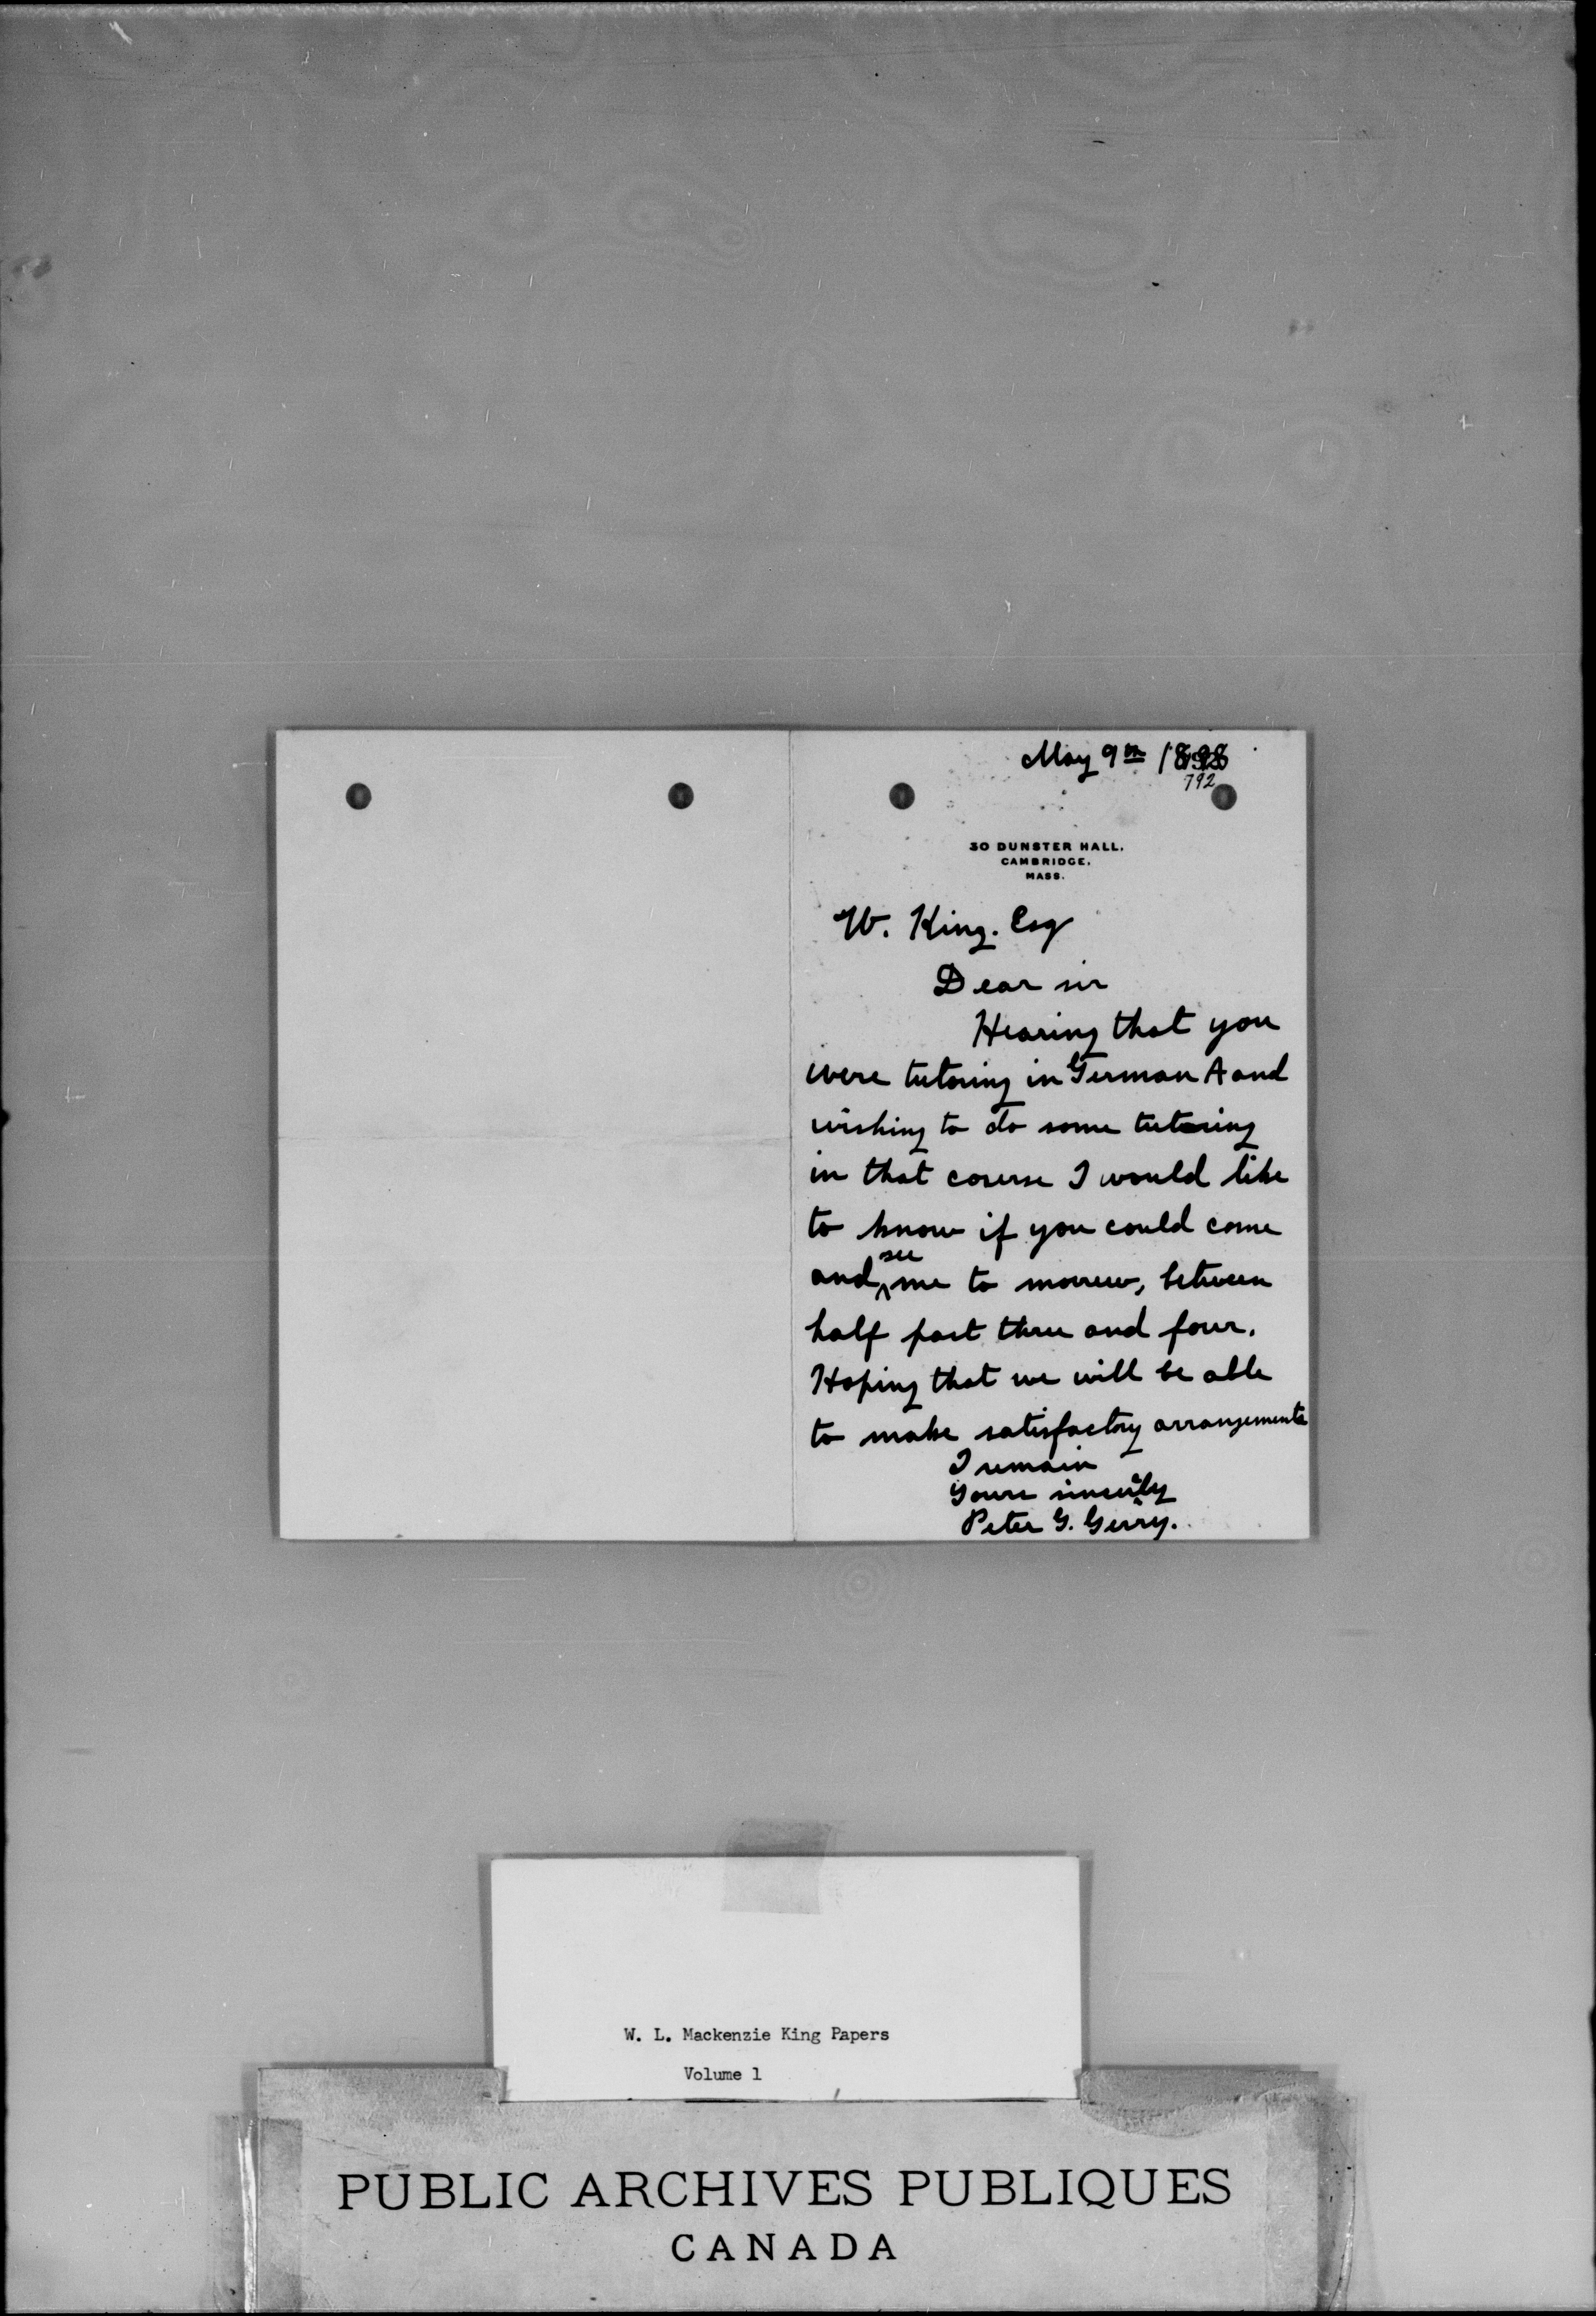 May 9th 1898
792
30 DUNSTER HALL.
CAMBRIDGE.
MASS.
W. King. Esq
Dear sir
Hearing that you
were tutoring in German A and
wishing to do some tutoring
in that course I would like
to know if you could come
and see me to morrow, between
half past three and four.
Hoping that we will be able
to make satisfactory arrangements
I remain
Yours sincerely
Peter G. Gerry.
W. L. Mackenzie King Papers
Volume 1
PUBLIC ARCHIVES PUBLIQUES
CANADA